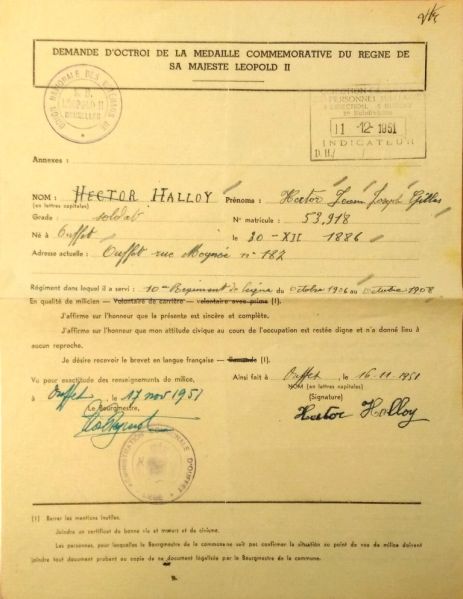 DEMANDE D'OCTROI DE LA MEDAILLE COMMEMORATIVE DU REGNE DE
SA MAJESTE LEOPOLD II
LEOPOLD II
BRUXELLES
11 -12- 1951
INDICATEUR
D. II/
Annexes :
NOM : HECTOR HALLOY Prénoms : Hector Jean Joseph Gilles
(en lettres capitales)
Grade : soldat N° matricule : 53,918
Né à Ouffet le 20-XII 1886
Adresse actuelle : Ouffet rue n° 187
Régiment dans lequel il a servi : 10me Regiment de ligne du octobre 1906 au octobre 1908
En qualité de milicien — Volontaire de carrière — volontaire avec prime (1).
J'affirme sur l'honneur que la présente est sincère et complète.
J'affirme sur l'honneur que mon attitude civique au cours de l'occupation est restée digne et n'a donné lieu à
aucun reproche.
Je désire recevoir le brevet en langue française — flamande (1).
Vu pour exactitude des renseignements de milice, Ainsi fait à Ouffet, le 16-11-1951
à Ouffet, le 17 nov 1951 NOM (en lettres capitales)
Le Bourgmestre, (Signature)
Hector Halloy
ADMINISTRATION COMMUNALE D'OUFFET
LIEGE
(1) Barrer les mentions inutiles.
Joindre un certificat de bonne vie et mœurs et de civisme.
Les personnes, pour lesquelles le Bourgmestre de la commune ne sait pas confirmer la situation au point de vue de milice doivent
joindre tout document probant ou copie de ce document légalisée par le Bourgmestre de la commune.